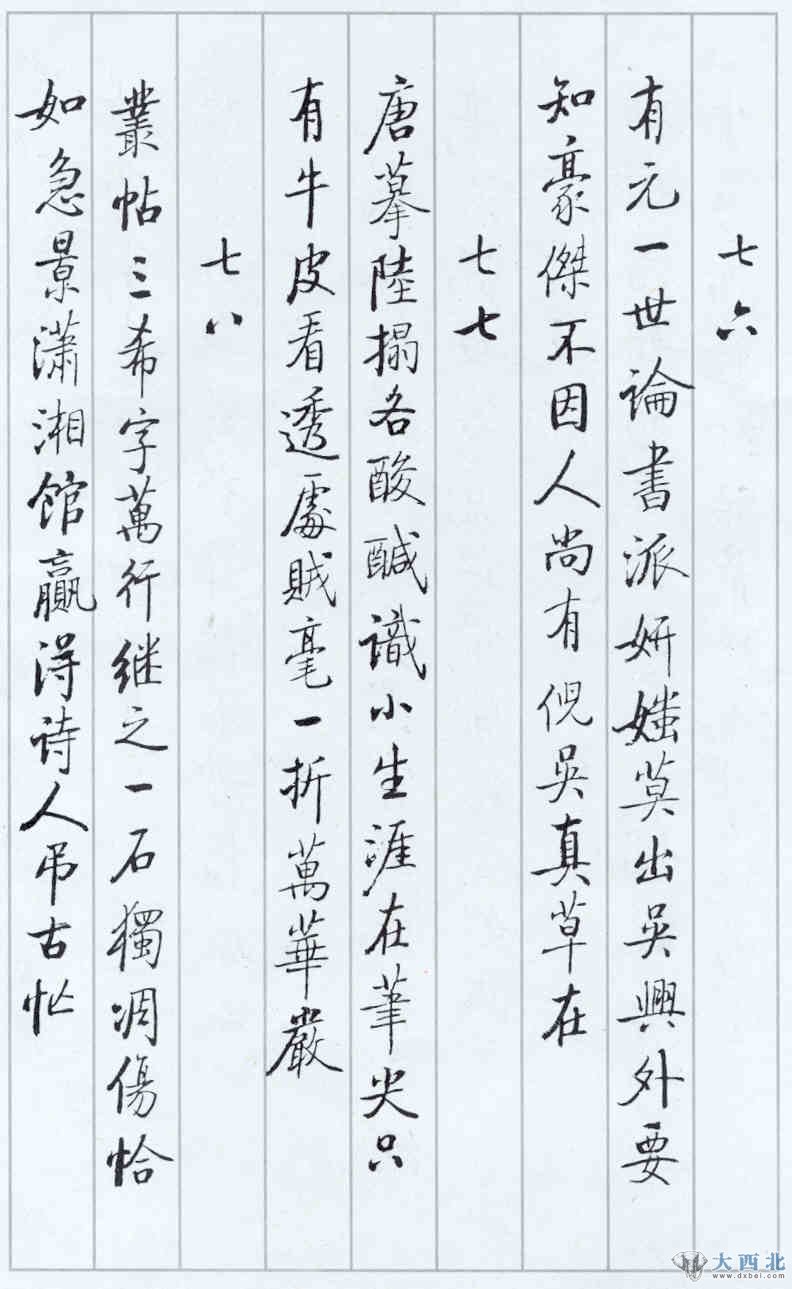 七六
有元一世論書派妍媸莫出吳興外要
知豪傑不因人尚有倪吳真草在
七七
唐摹陸搨各酸醎識小生涯在筆尖只
有牛皮看透處賊毫一折萬華嚴
七八
叢帖三希字萬行继之一石獨凋傷恰
如急景潇湘館贏得诗人吊古忙
大西北
www.dxbei.com